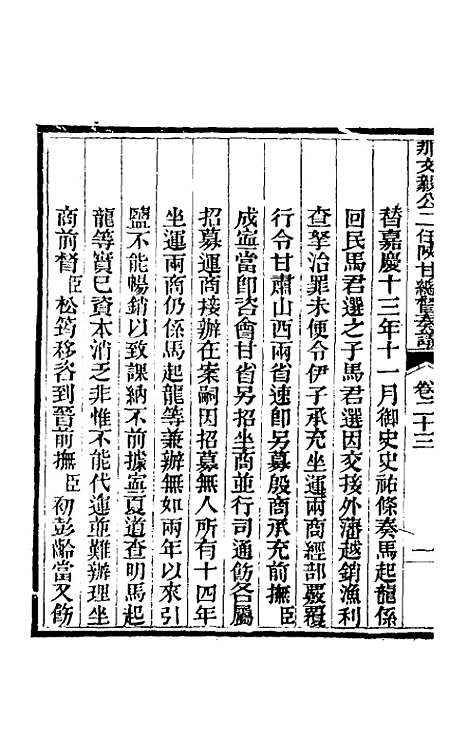 那文毅公二任陝甘總督奏議 卷二十三 二
替嘉慶十三年十一月御史史祐條奏馬起龍係
回民馬君選之子馬君選因交接外藩越銷漁利
查拏治罪未便令伊子承充坐運兩商經部嚴覆
行令甘肅山西兩省速卽另募殷商承充前撫臣
成寧當卽咨會甘省另招坐商並行司通飭各屬
招募運商接辦在案嗣因招募無人所有十四年
坐運兩商仍係馬起龍等兼辦無如兩年以來引
鹽不能暢銷以致課納不前據寧夏道查明馬起
龍等實已資本消乏非惟不能代運並難辦理坐
商前督臣松筠移咨到晉前撫臣初彭齡當又飭